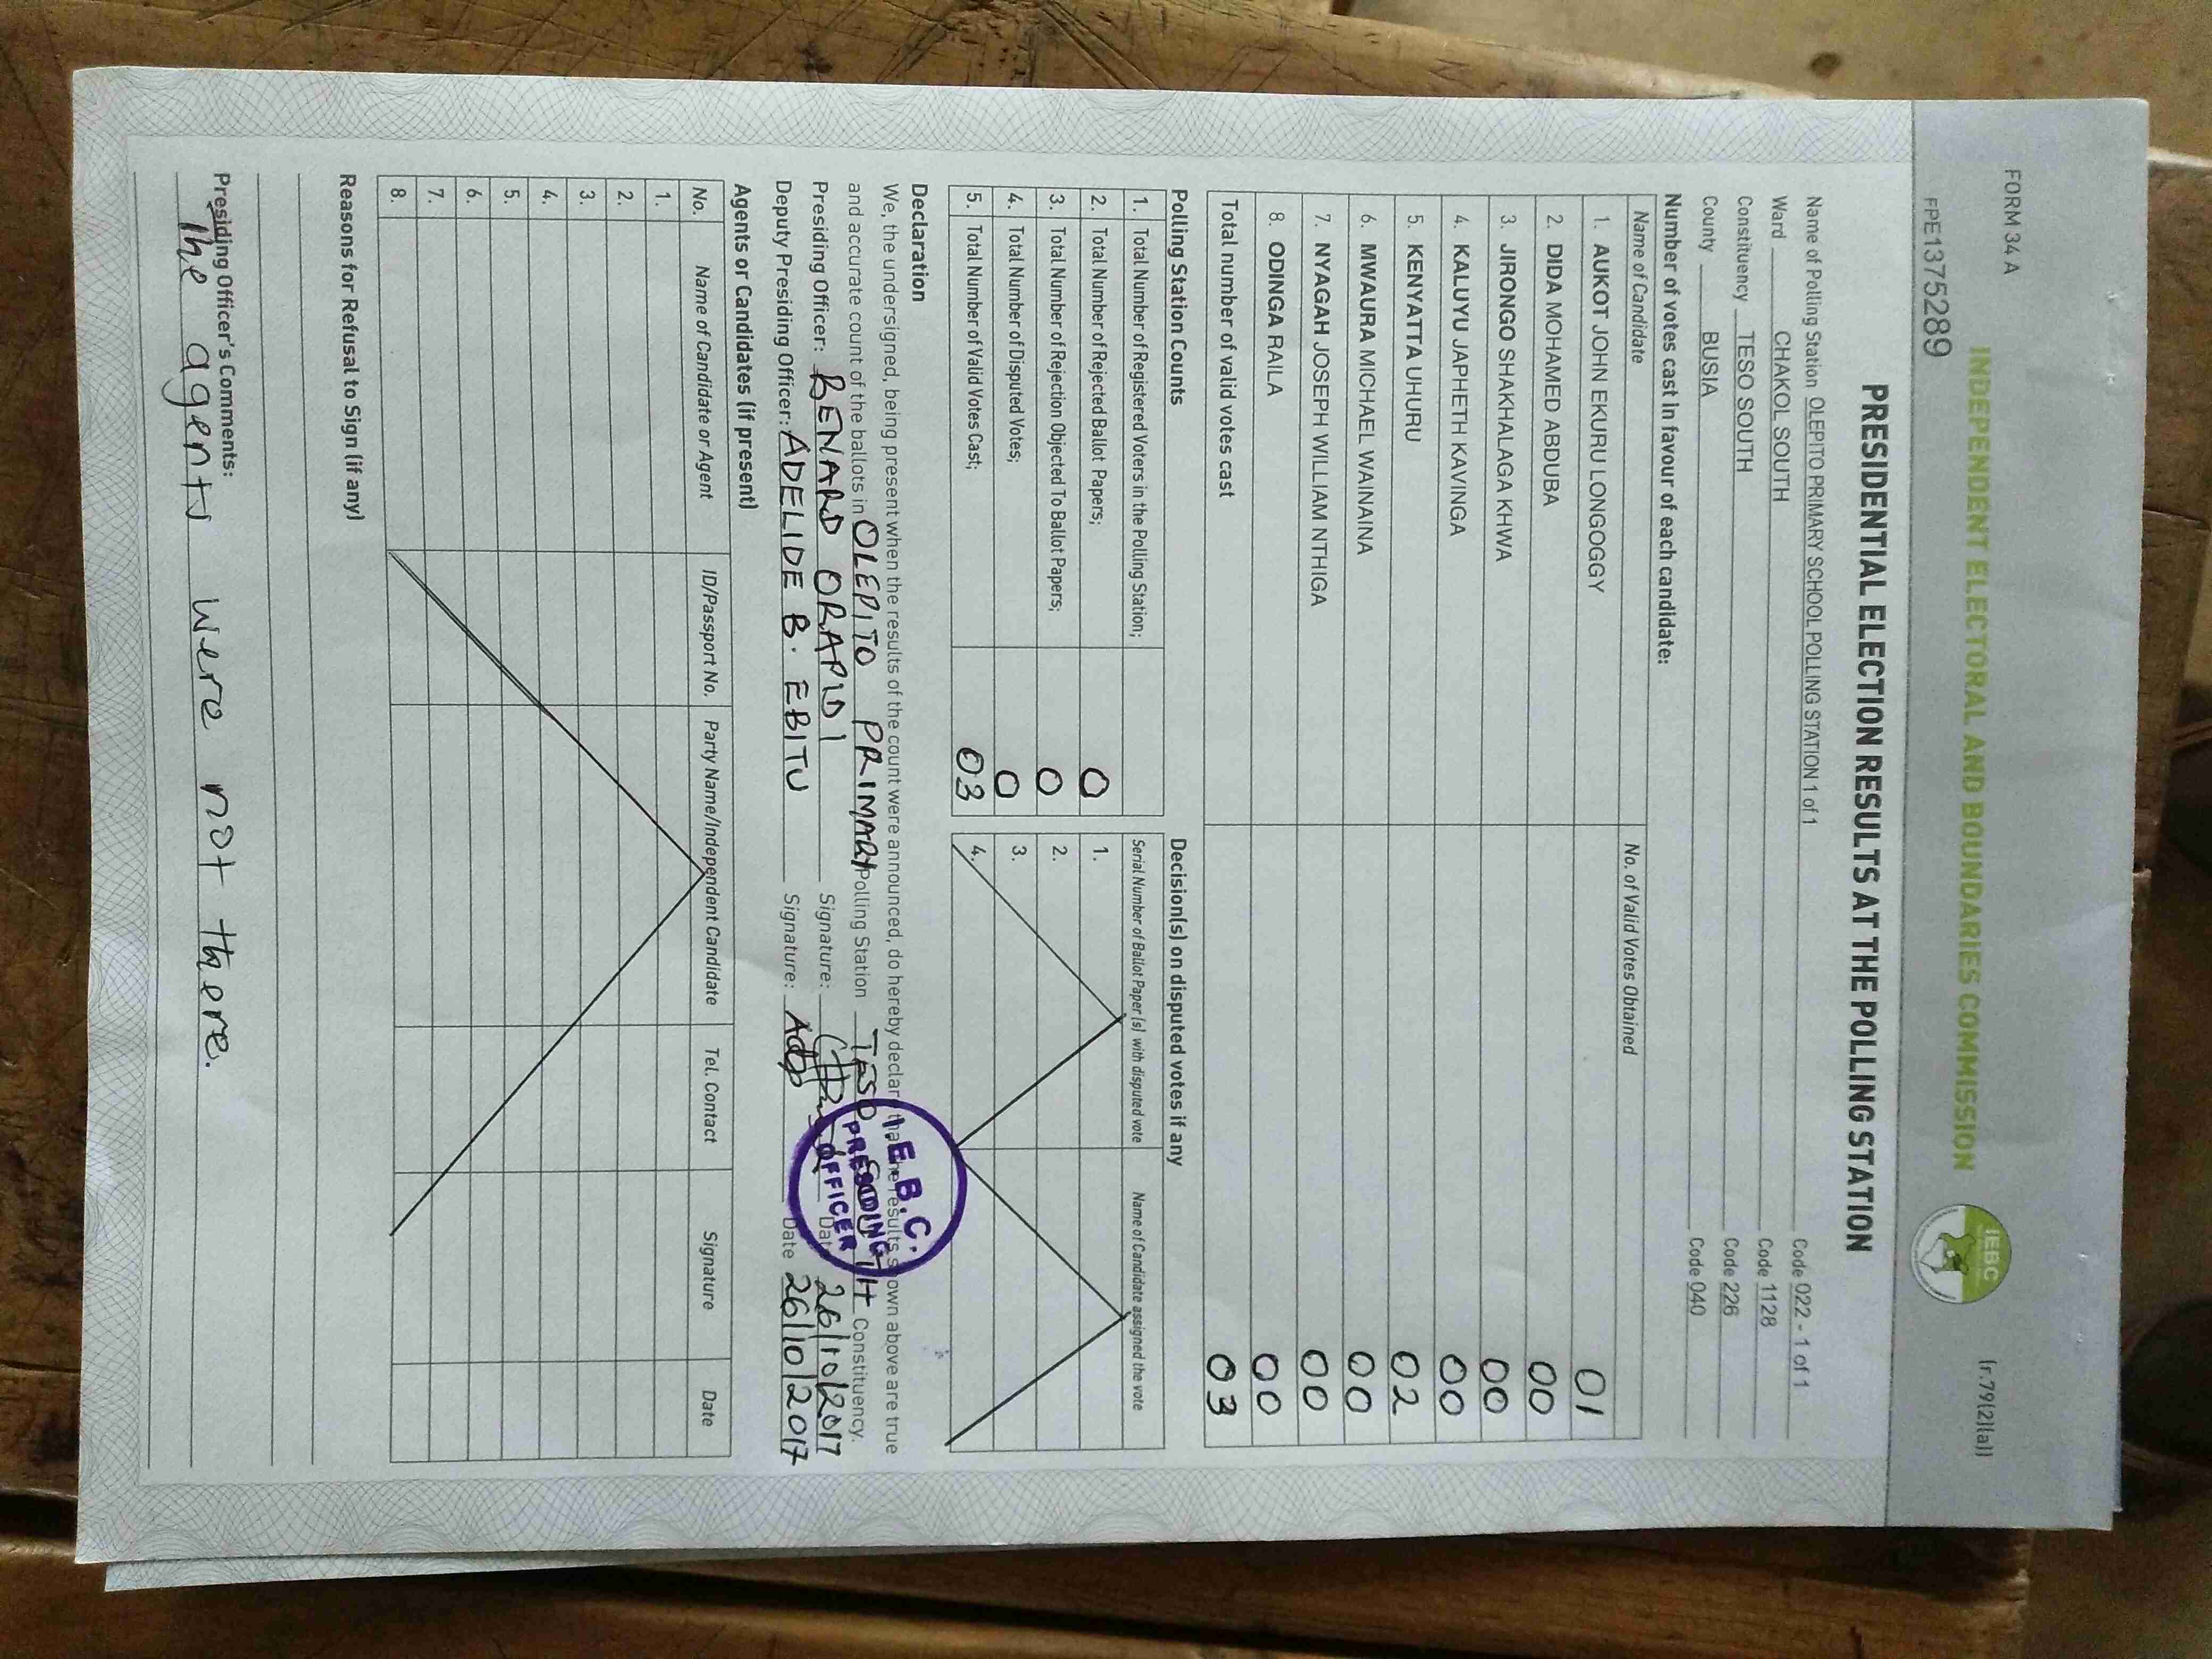 FORM 34 A
(r.79(2)(a))
INDEPENDENT ELECTORAL AND BOUNDARIES COMMISSION
IEBC
FPE1375289
PRESIDENTIAL ELECTION RESULTS AT THE POLLING STATION
Name of Polling Station OLEPITO PRIMARY SCHOOL POLLING STATION 1 of 1 Code 022 - 1 of 1
Ward CHAKOL SOUTH Code 1128
Constituency TESO SOUTH Code 226
County BUSIA Code 040
Number of votes cast in favour of each candidate:
Name of Candidate No. of Valid Votes Obtained
1. AUKOT JOHN EKURU LONGOGGY 01
2. DIDA MOHAMED ABDUBA 00
3. JIRONGO SHAKHALAGA KHWA 00
4. KALUYU JAPHETH KAVINGA 00
5. KENYATTA UHURU 02
6. MWAURA MICHAEL WAINAINA 00
7. NYAGAH JOSEPH WILLIAM NTHIGA 00
8. ODINGA RAILA 00
Total number of valid votes cast 03
Polling Station Counts
1. Total Number of Registered Voters in the Polling Station;
2. Total Number of Rejected Ballot Papers; 0
3. Total Number of Rejection Objected To Ballot Papers; 0
4. Total Number of Disputed Votes; 0
5. Total Number of Valid Votes Cast; 03
Decision(s) on disputed votes if any
Serial Number of Ballot Paper (s) with disputed vote Name of Candidate assigned the vote
1.
2.
3.
4.
Declaration
We, the undersigned, being present when the results of the count were announced, do hereby declare that the results shown above are true
and accurate count of the ballots in OLEPITO PRIMARY Polling Station TESO SOUTH Constituency.
Presiding Officer: BENARD ORAPIDI Signature: Date 26/10/2017
Deputy Presiding Officer: ADELIDE B. EBITU Signature: Date 26/10/2017
I.E.B.C.
PRESIDING
OFFICER
Agents or Candidates (if present)
No. Name of Candidate or Agent ID/Passport No. Party Name/Independent Candidate Tel. Contact Signature Date
1.
2.
3.
4.
5.
6.
7.
8.
Reasons for Refusal to Sign (if any)
Presiding Officer's Comments:
The agents were not there.